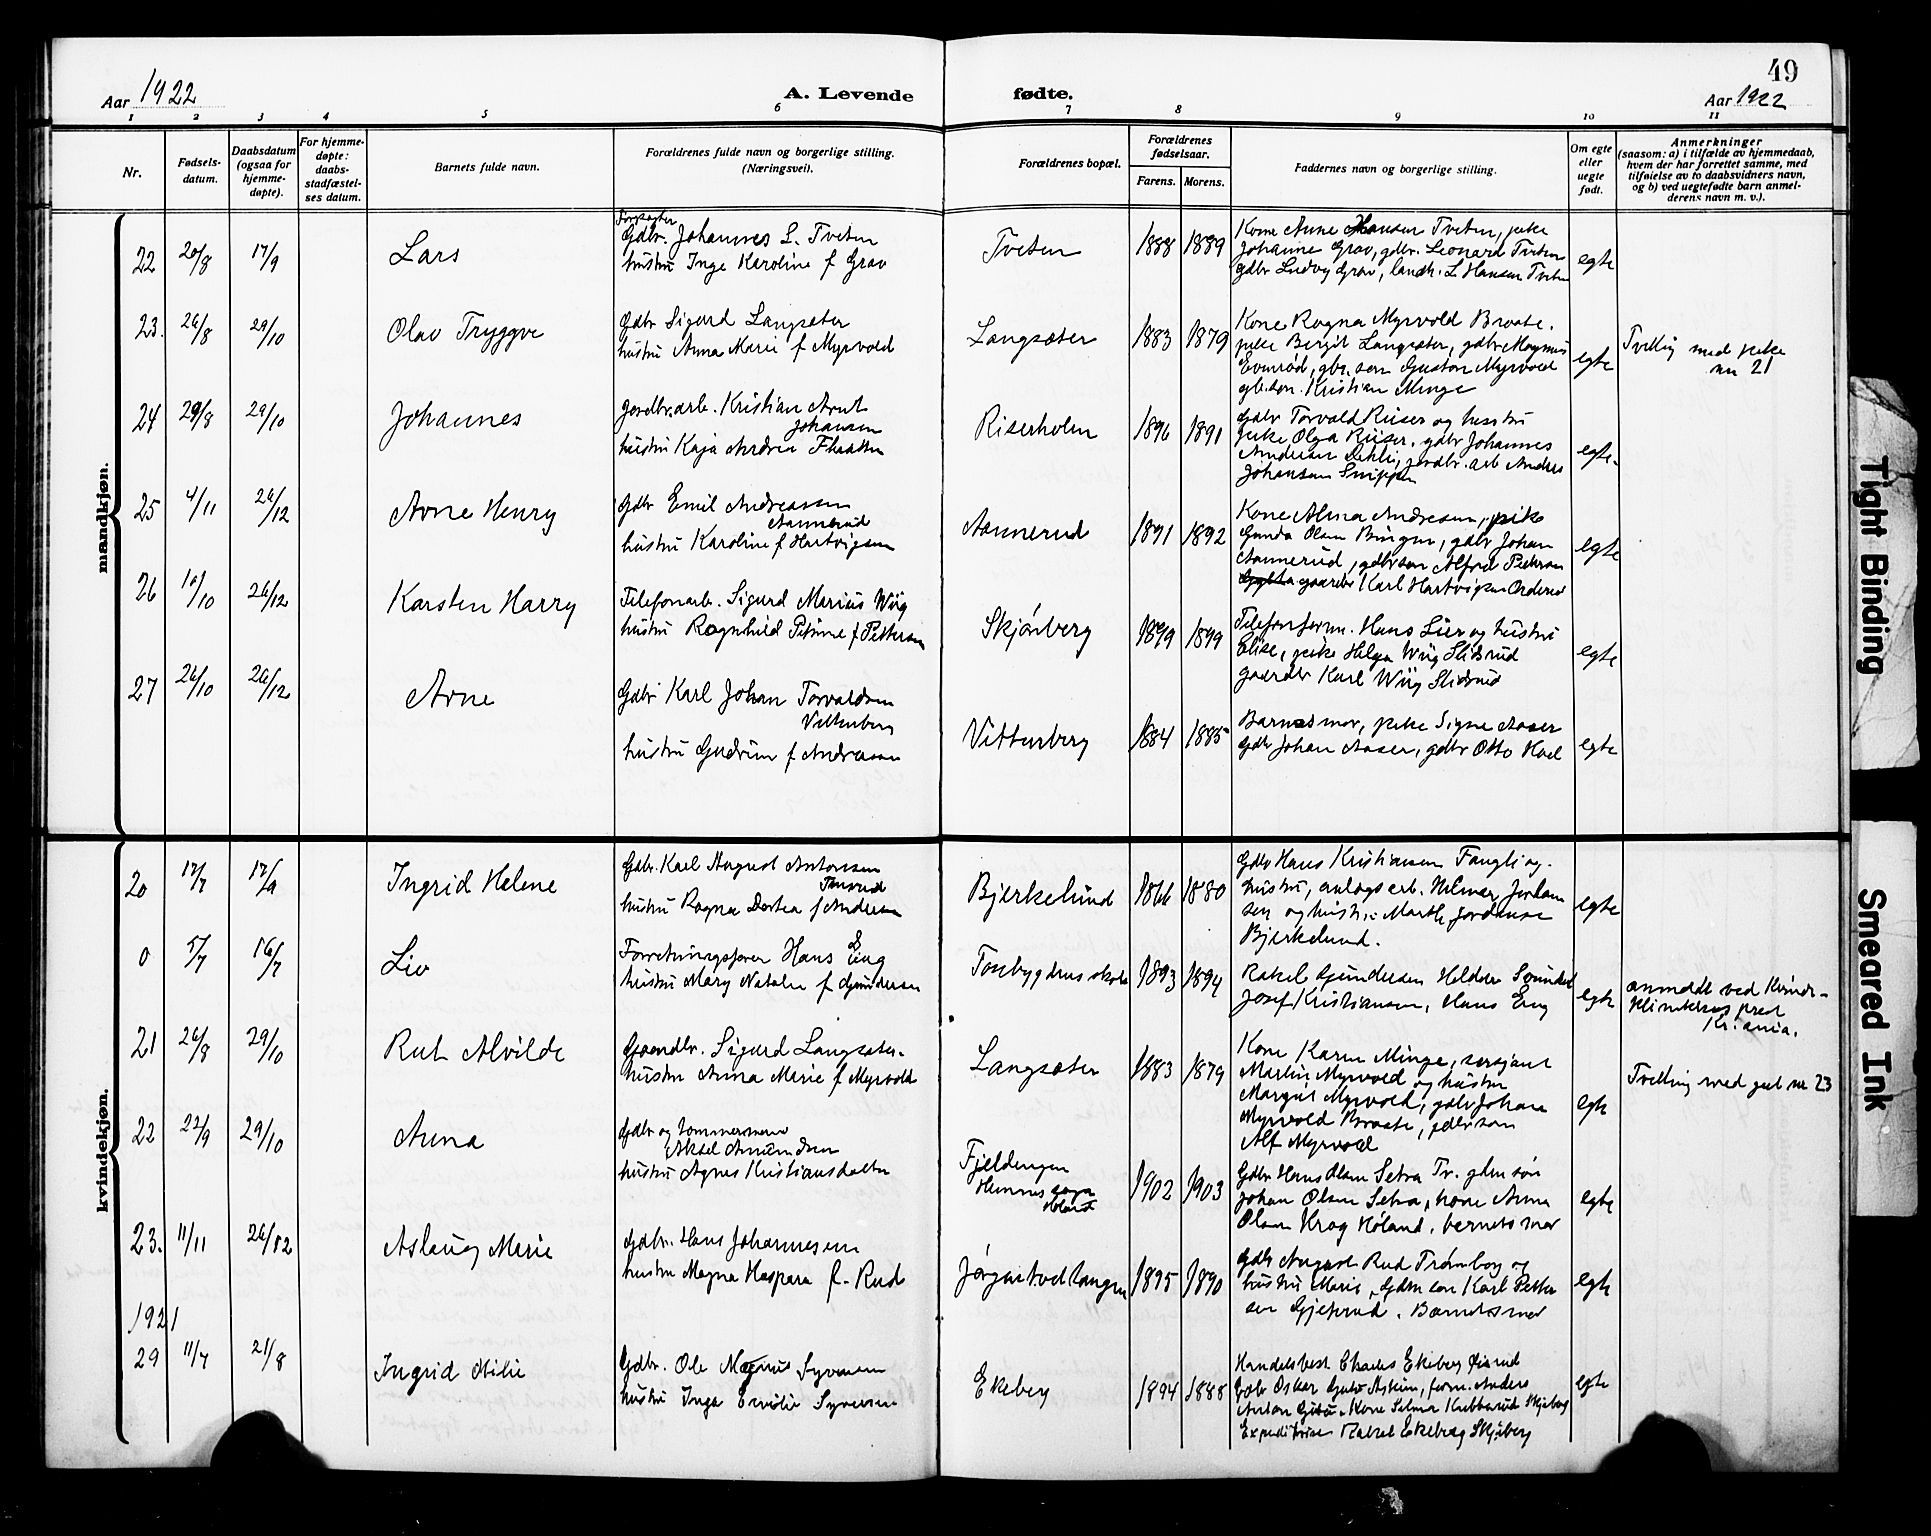 49
Aar 1922
A. Levende fødte.
Aar 1922
1 2 3 4 5 6 7 8 9 10 11
Nr.
Fødsels-
datum.
Daabsdatum
(ogsaa for
hjemme-
døpte).
For hjemme-
døpte:
daabs-
stadfæstel-
ses datum.
Barnets fulde navn.
Forældrenes fulde navn og borgerlige stilling.
(Næringsvei).
Forældrenes bopæl.
Forældrenes
fødselsaar.
Farens. Morens.
Faddernes navn og borgerlige stilling.
Om egte
eller
uegte
født.
Anmerkninger
(saasom: a) i tilfælde av hjemmedaab,
hvem der har forrettet samme, med
tilføielse av to daabsvidners navn,
og b) ved uegtefødte barn anmel-
derens navn m. v.).
mandkjøn.
22 20/8 17/9
Lars
Gdbr. Johannes L. Tveten
hustru Inga Karoline f Grav
Tveten
1888 1889
Kone Anne Hansen Tveten, pike
Johanne Grav, gdbr. Leonard Tveten
gdbr Ludvig Grav, landh. L Hansen Tveten
egte
23. 26/8 29/10
Olav Tryggve
Gdbr Sigurd Langsæter
hustru Anna Marie f Myrvold
Langsæter
1883 1879
Kone Ragna Myrvold Braate.
pike Bergit Langsæter, gdbr Magnus
Evenrød, gbr. søn Gustav Myrvold
gb. søn. Kristian Minge
egte
Tvilling med pike
nr 21
24 29/8 29/10
Johannes
Jordbr.arb. Kristian Arnt
Johansen
hustru Kaja Andrea
Riserholm
1896 1891
Gdbr Torvald Riiser og hustru
pike Olga Riiser, gdbr Johannes
Andersen Dehli, jordbr. arb Anders
Johansen
egte.
25 4/11 26/12
Arne Henry
Gdbr Emil Andreassen
Aannerud
hustru Karoline f Hartvigsen
Aannerud
1891 1892
Kone Alma Andresen, pike
Gunda Olsen Bingen, gdbr Johan
Aannerud, gdbr søn Alfred Pettersen
gaardbr Karl Hartvigsen
egte
26 10/10 26/12
Karsten Harry
Telefonarb. Sigurd Marius Wiig
hustru Ragnhild Petrine f Pettersen
Skjønberg
1899 1899
Telefonform. Hans Lier og hustru
Elise, pike Helga Wiig Slidsrud
gaardbr Karl Wiig Slidsrud
egte
27 26/10 26/12
Arne
Gdbr Karl Johan Torvaldsen
Vittenberg
hustru Gudrun f Andreasen
Vittenberg
1884 1885
Barnets mor, pike Signe Aaser
Gdbr Johan Aaser, gdbr Otto Hoel
egte
kvindekjøn.
20 17/7 17/9
Ingrid Helene
Gdbr. Karl August Antonsen
hustru Ragna Dortea f Andersen
Bjerkelund
1866 1880
Gdbr Hans Kristiansen Fangli og
hustru, anlægsarb. Hilmar Jordan
sen og hustru Marthe Jordansen
Bjerkelund.
egte
0 5/7 16/7
Liv
Forretningsfører Hans Eng
hustru Mary Natalie f Gundersen
Tosebygdens skole
1893 1894
Rakel Gundersen
Josef Kristiansen, Hans Eng
egte
anmeldt ved Kvinde-
klinikkens prest
Kr.ania.
21 26/8 29/10
Rut Alvilde
Gaardbr. Sigurd Langsæter.
hustru Anna Marie f Myrvold
Langsæter
1883 1879
Kone Karen Minge, sersjant
Martin Myrvold og hustru
Margit Myrvold, gdbr Johan
Myrvold Braate, gdbr søn
Alf Myrvold
egte
Tvilling med gut nr 23
22 22/9 29/10
Anna
Gdbr og tømmermand
Aksel Amundsen
hustru Agnes Kristiansdatter
Fjeldengen
Hemnes sogn
Høland
1902 1903
Gdbr Hans Olsen Setra Tr. gdbr søn
Johan Olsen Setra, kone Anna
Olsen Krog Høland, barnets mor
egte
23. 11/11 26/12
Aslaug Marie
Gdbr. Hans Johannesen
hustru Magna Kaspara f. Rud
1895 1890
Gdbr August Rud Trømborg og
hustru Marie, Gdbr søn Karl Petter
sen Gjeterud, Barnets mor
egte
1921
29 11/7 21/8
Ingrid Milie
Gdbr. Ole Magnus Syversen
hustru Inga Emilie Syversen
Ekeberg
1894 1888
Handelsbest. Charles Ekeberg
Gdbr Oskar Askim, form. Anders
Anton, Kone Selma Kubberud Skjeberg
Ekspeditrise Ekeberg Skjeberg
egte
Tight Binding
Smeared Ink